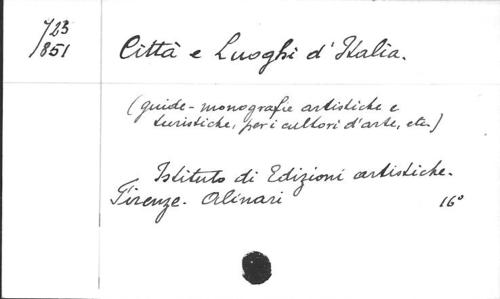 723
851
Città e Luoghi d'Italia.
(guide-monografie artistiche e
turistiche, per i cultori d'arte, etc.)
Istituto di Edizioni artistiche.
Firenze. Alinari 16°